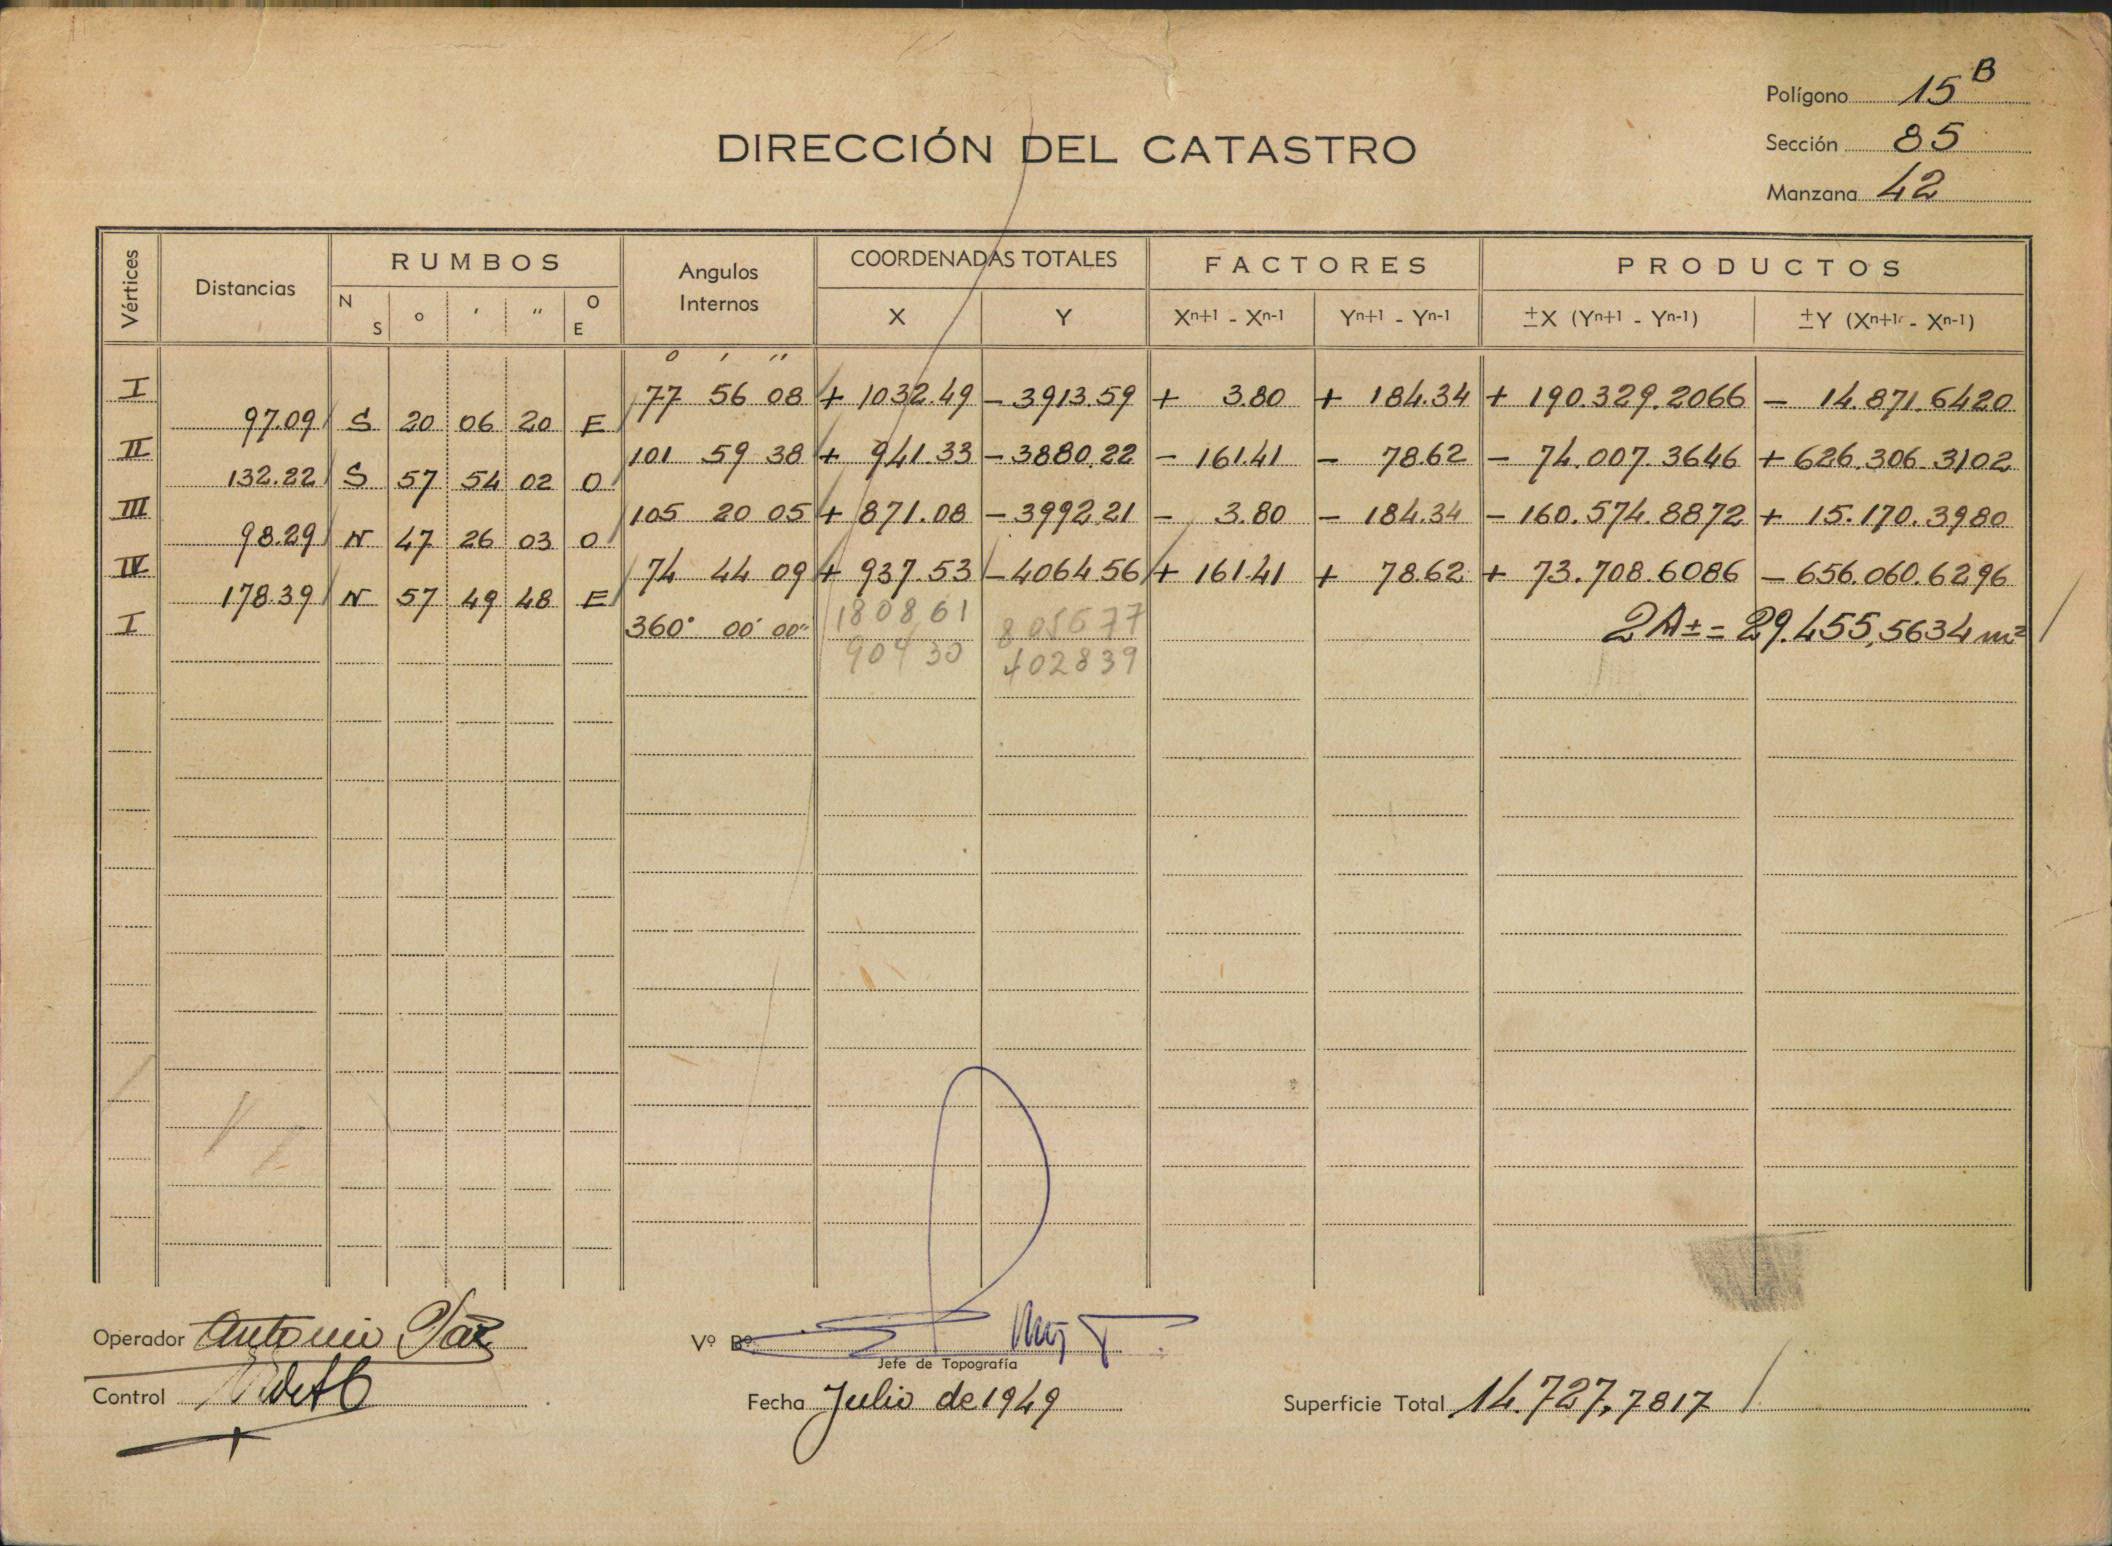 Polígono 15 B
DIRECCIÓN DEL CATASTRO
Sección 85
Manzana 42
Vértices Distancias RUMBOS Angulos Internos COORDENADAS TOTALES FACTORES PRODUCTOS
N S ° ' '' O E X Y Xn+1 - Xn-1 Yn+1 - Yn-1 ±X (Yn+1 - Yn-1) ±Y (Xn+1 - Xn-1)
° ' ''
I 77 56 08 + 1032.49 - 3913.59 + 3.80 + 184.34 + 190.329.2066 - 14.871.6420
97.09 S 20 06 20 E
II 101 59 38 + 941.33 - 3880.22 - 161.41 - 78.62 - 74.007.3646 + 626.306.3102
132.22 S 57 54 02 O
III 105 20 05 + 871.08 - 3992.21 - 3.80 - 184.34 - 160.574.8872 + 15.170.3980
98.29 N 47 26 03 O
IV 74 44 09 + 937.53 - 4064.56 + 161.41 + 78.62 + 73.708.6086 - 656.060.6296
178.39 N 57 49 48 E
I 360° 00' 00'' 180861 805677 2A± = 29.455,5634 m²
90430 402839
Operador Antonio Páz
Vº Bº
Jefe de Topografía
Control
Fecha Julio de 1949
Superficie Total 14.727,7817